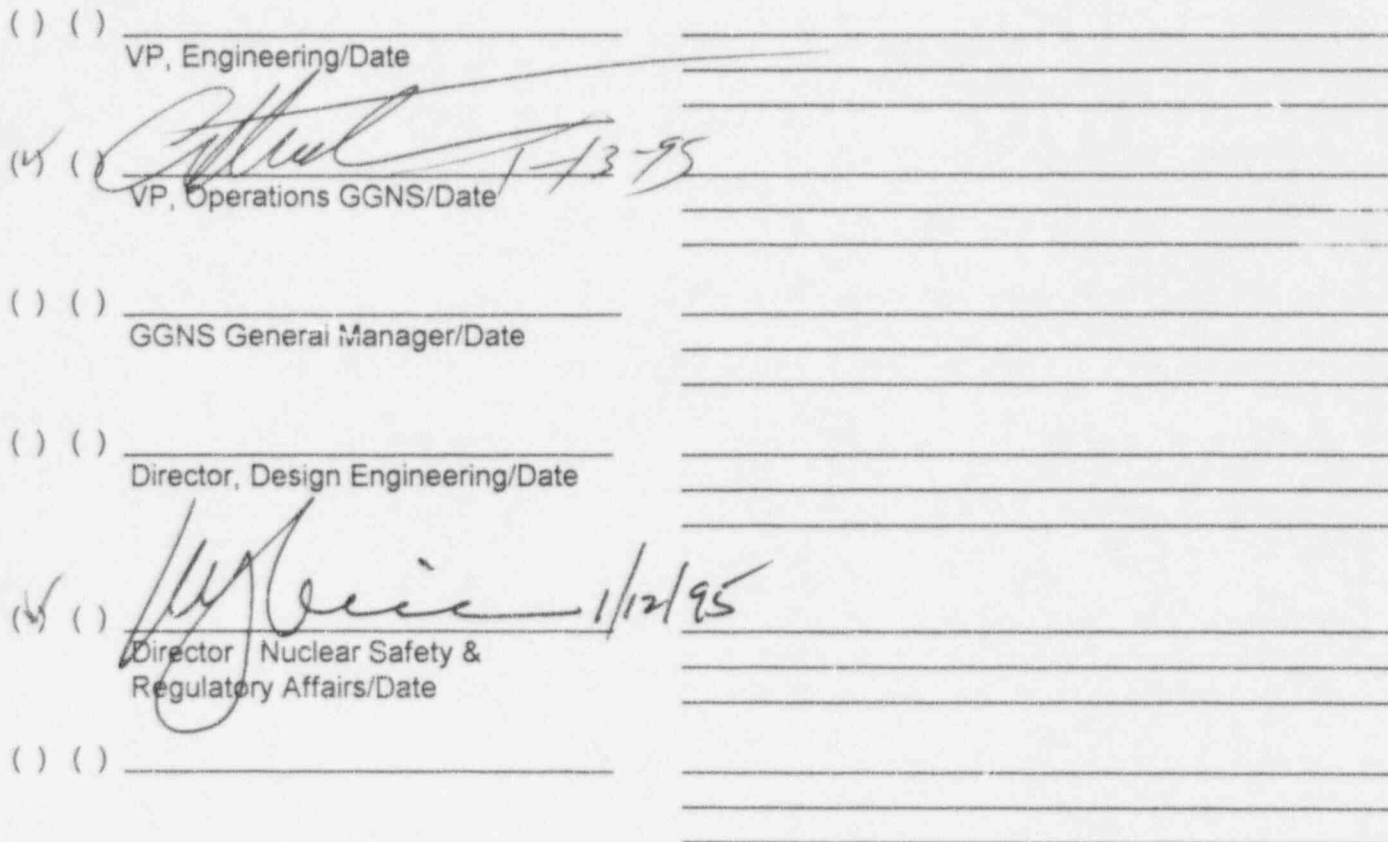 ( ) ( )
VP, Engineering/Date
(✓) ( ) 1-13-95
VP, Operations GGNS/Date
( ) ( )
GGNS General Manager/Date
( ) ( )
Director, Design Engineering/Date
(✓) ( ) 1/12/95
Director Nuclear Safety &
Regulatory Affairs/Date
( ) ( )